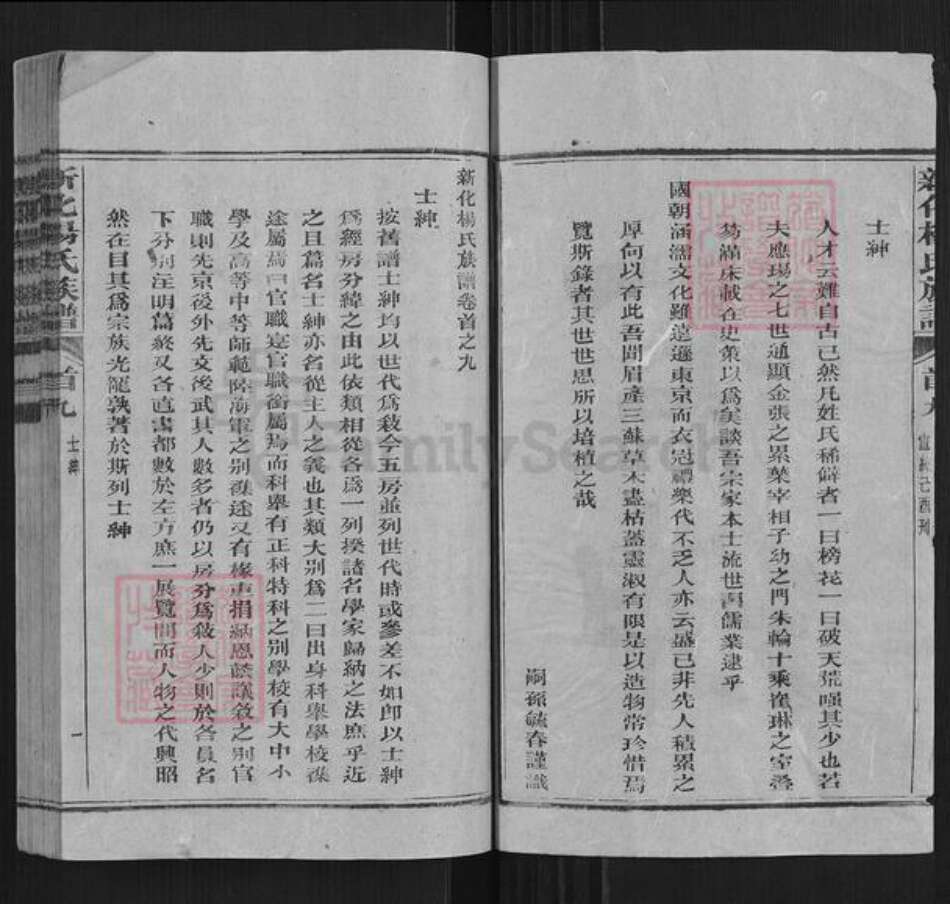 士紳
人才云難自古已然凡姓氏稀僻者一曰榜花一曰破天荒嘆其少也若
夫應瑒之七世通顯金張之累葉宰相子幼之門朱輪十乘崔琳之室疊
笏滿床載在史策以為美談吾宗家本士流世習儒業逮乎
國朝涵濡文化雖遠遜東京而衣冠禮樂代不乏人亦云盛已非先人積累之
厚何以有此吾聞眉產三蘇草木盡枯蓋靈淑有限是以造物常珍惜焉
覽斯錄者其世世思所以培植之哉
嗣孫毓春謹識
新化楊氏族譜 首九 宣統己酉刊
新化楊氏族譜卷首之九
士紳
按舊譜士紳均以世代為敘今五房並列世代時或參差不如即以士紳
為經房分緯之由此依類相從各為一列揆諸名學家歸納之法庶乎近
之且篇名士紳亦名從主人之義也其類大別為二曰出身科舉學校雜
途屬焉曰官職實官職銜屬焉而科舉有正科特科之別學校有大中小
學及高等中等師範陸海軍之別雜途又有掾吏捐納恩蔭議敘之別官
職則先京後外先文後武其人數多者仍以房分為敘人少則於各員名
下分別注明篇終又各直書都數於左方庶一展覽間而人物之代興昭
然在目其為宗族光寵孰著於斯列士紳
新化楊氏族譜 首九 士紳 一
FamilySearch